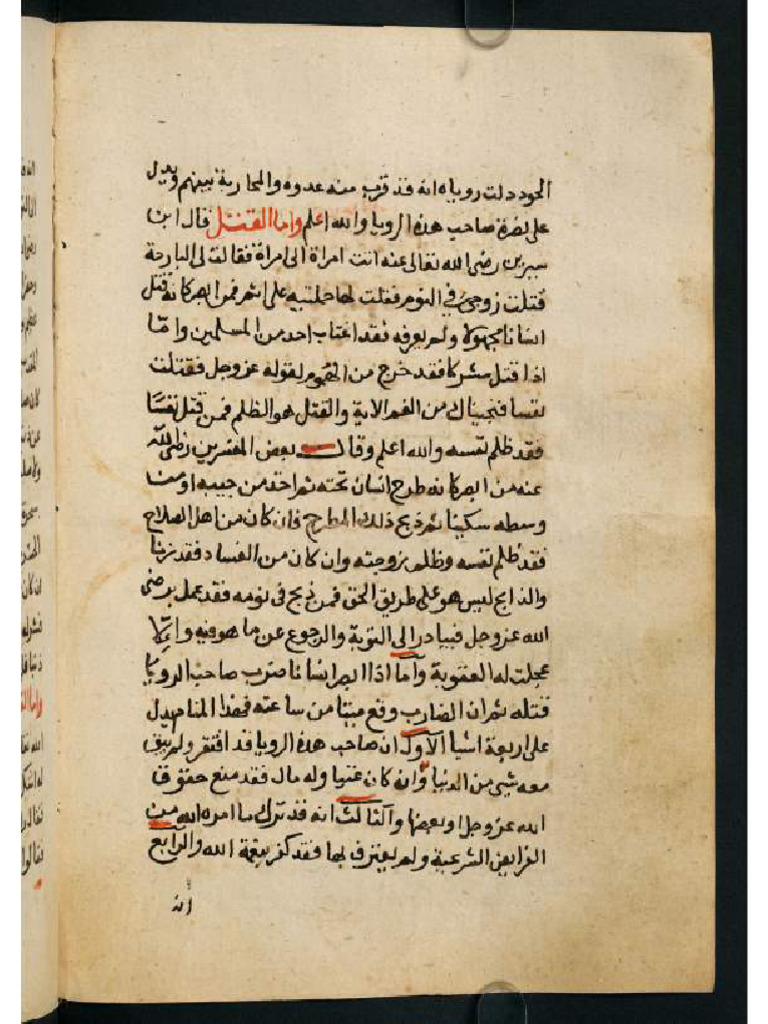 الحود دلت روياه انه قد قرب منه عدوه والمحاربة بينهم ويدل
على نصرة صاحب هذه الرويا والله اعلم واما القتل قال ابن
سيرين رضي الله تعالى عنه اتت امراة الى امراة فقالت لى البارحة
قتلت زوجي في النوم فقلت لها حملتيه على اثم فمن ابصر كانه قتل
انسانا مجهولا ولم يعرفه فقد اغتاب احد من المسلمين واما
اذا قتل مشركا فقد خرج من الهموم لقوله عز وجل فقتلت
نفسا فنجيناك من الغم الاية والقتل هو الظلم فمن قتل نفسا
فقد ظلم نفسه والله اعلم وقال بعض المفسرين رضى الله
عنه من ابصر كانه طرح انسان تحته ثم اخذ من جيبه او من
وسطه سكينا ثم ذبح ذلك المطرح فان كان من اهل الصلاح
فقد ظلم نفسه وظلم زوجته وان كان من الفساد فقد زنا
والذابح ليس هو على طريق الحق فمن ذبح فى نومه فقد عمل برضى
الله عز وجل فيبادر الى التوبة والرجوع عن ما هو فيه والا
عجلت له العقوبة واما اذا ابصر انسانا ضرب صاحب الرويا
قتله ثم ان الضارب وقع ميتا من ساعته فهذا المنام يدل
على اربعة اشيا الاول ان صاحب هذه الرويا قد افتقر ولم يبق
معه شي من الدنيا وان كان غنيا وله مال فقد منع حقوق
الله عز وجل او بعضها والثالث انه قد ترك ما امره الله من
الفرايض الشرعية ولم يعترف بها فقد كفر بنعمة الله والرابع
انه